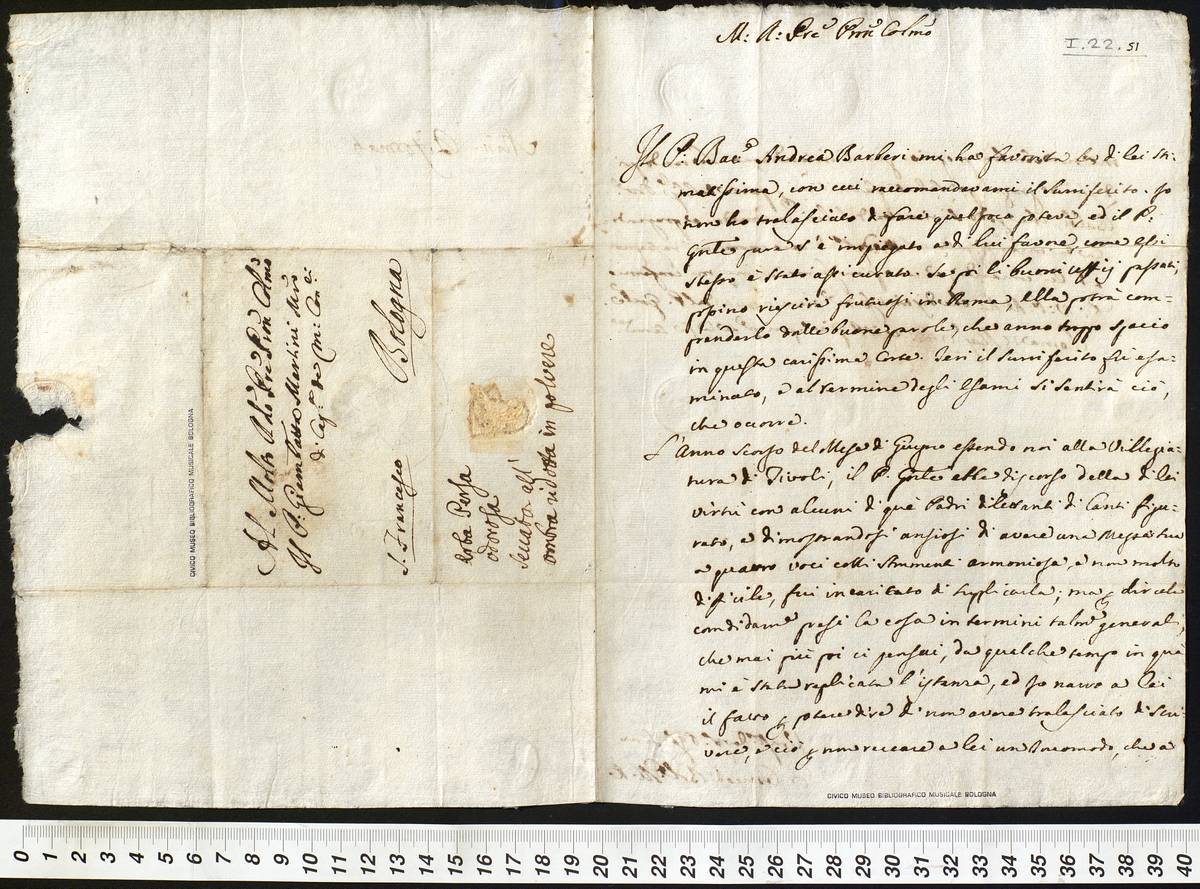 Al Molto Rdo Pre Pron Colmo
Il P. Giambatta Martini Min:
di Cap: de Mi: Con:ci
S. Francesco Bologna
erba Persa
odorosa
seccata all'
ombra ridotta in polvere
CIVICO MUSEO BIBLIOGRAFICO MUSICALE BOLOGNA
M: R: Pre Pron Colmo
I.22.51
Il P: Bac:e Andrea Barberi mi ha favorita la di lei sti-
matissima, con cui raccomandavami il surriferito. Io
non ho tralasciato di fare quel poco poteva, ed il P:
Gnle pure s'è impiegato a di lui favore, come essi
stesso è stato assicurato. Se poi li buoni ufficij passati,
possino riescire fruttuosi in Roma, ella potrà com-
prenderlo dalle buone parole, che anno troppo spaccio
in questa carissima Corte. Ieri il surriferito fù esa-
minato, e al termine degli Esami si sentirà ciò,
che ocorre.
L'Anno scorso del Mese di Giugno essendo noi alla Villegia-
tura di Tivoli, il P. Gnle ebbe discorso della di lei
virtù con alcuni di què Padri dilettanti di Canti figu-
rato, e dimostrandosi ansiosi di avere una Messa tua
a quattro voci colli strumenti armoniosa, e non molto
dificile, fui incaricato di supplicarla; ma p dircela
confidarme presi la cosa in termini talmte generali,
che mai più poi ci pensai, da qualche tempo in quà
mi è stata replicata l'istanza, ed Io narro a Lei
il fatto p potere dire di non avere tralasciato di scri-
vere, e ciò p non reccare a lei un Incomodo, che a
CIVICO MUSEO BIBLIOGRAFICO MUSICALE BOLOGNA
0 1 2 3 4 5 6 7 8 9 10 11 12 13 14 15 16 17 18 19 20 21 22 23 24 25 26 27 28 29 30 31 32 33 34 35 36 37 38 39 40